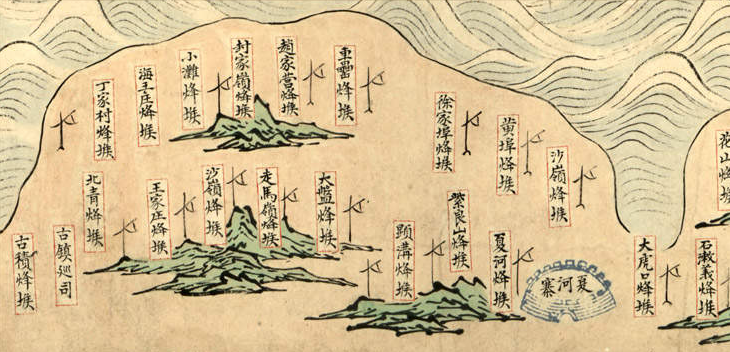 花山烽堠
沙嶺烽堠
黃埠烽堠
徐家埠烽堠
烽堠
趙家營烽堠
封家嶺烽堠
小灘烽堠
海王庄烽堠
丁家村烽堠
石義烽堠
大虎口烽堠
夏河寨
夏河烽堠
紫良山烽堠
顕溝烽堠
大盤烽堠
走馬嶺烽堠
沙嶺烽堠
王家庄烽堠
北青烽堠
古鎮廵司
古積烽堠